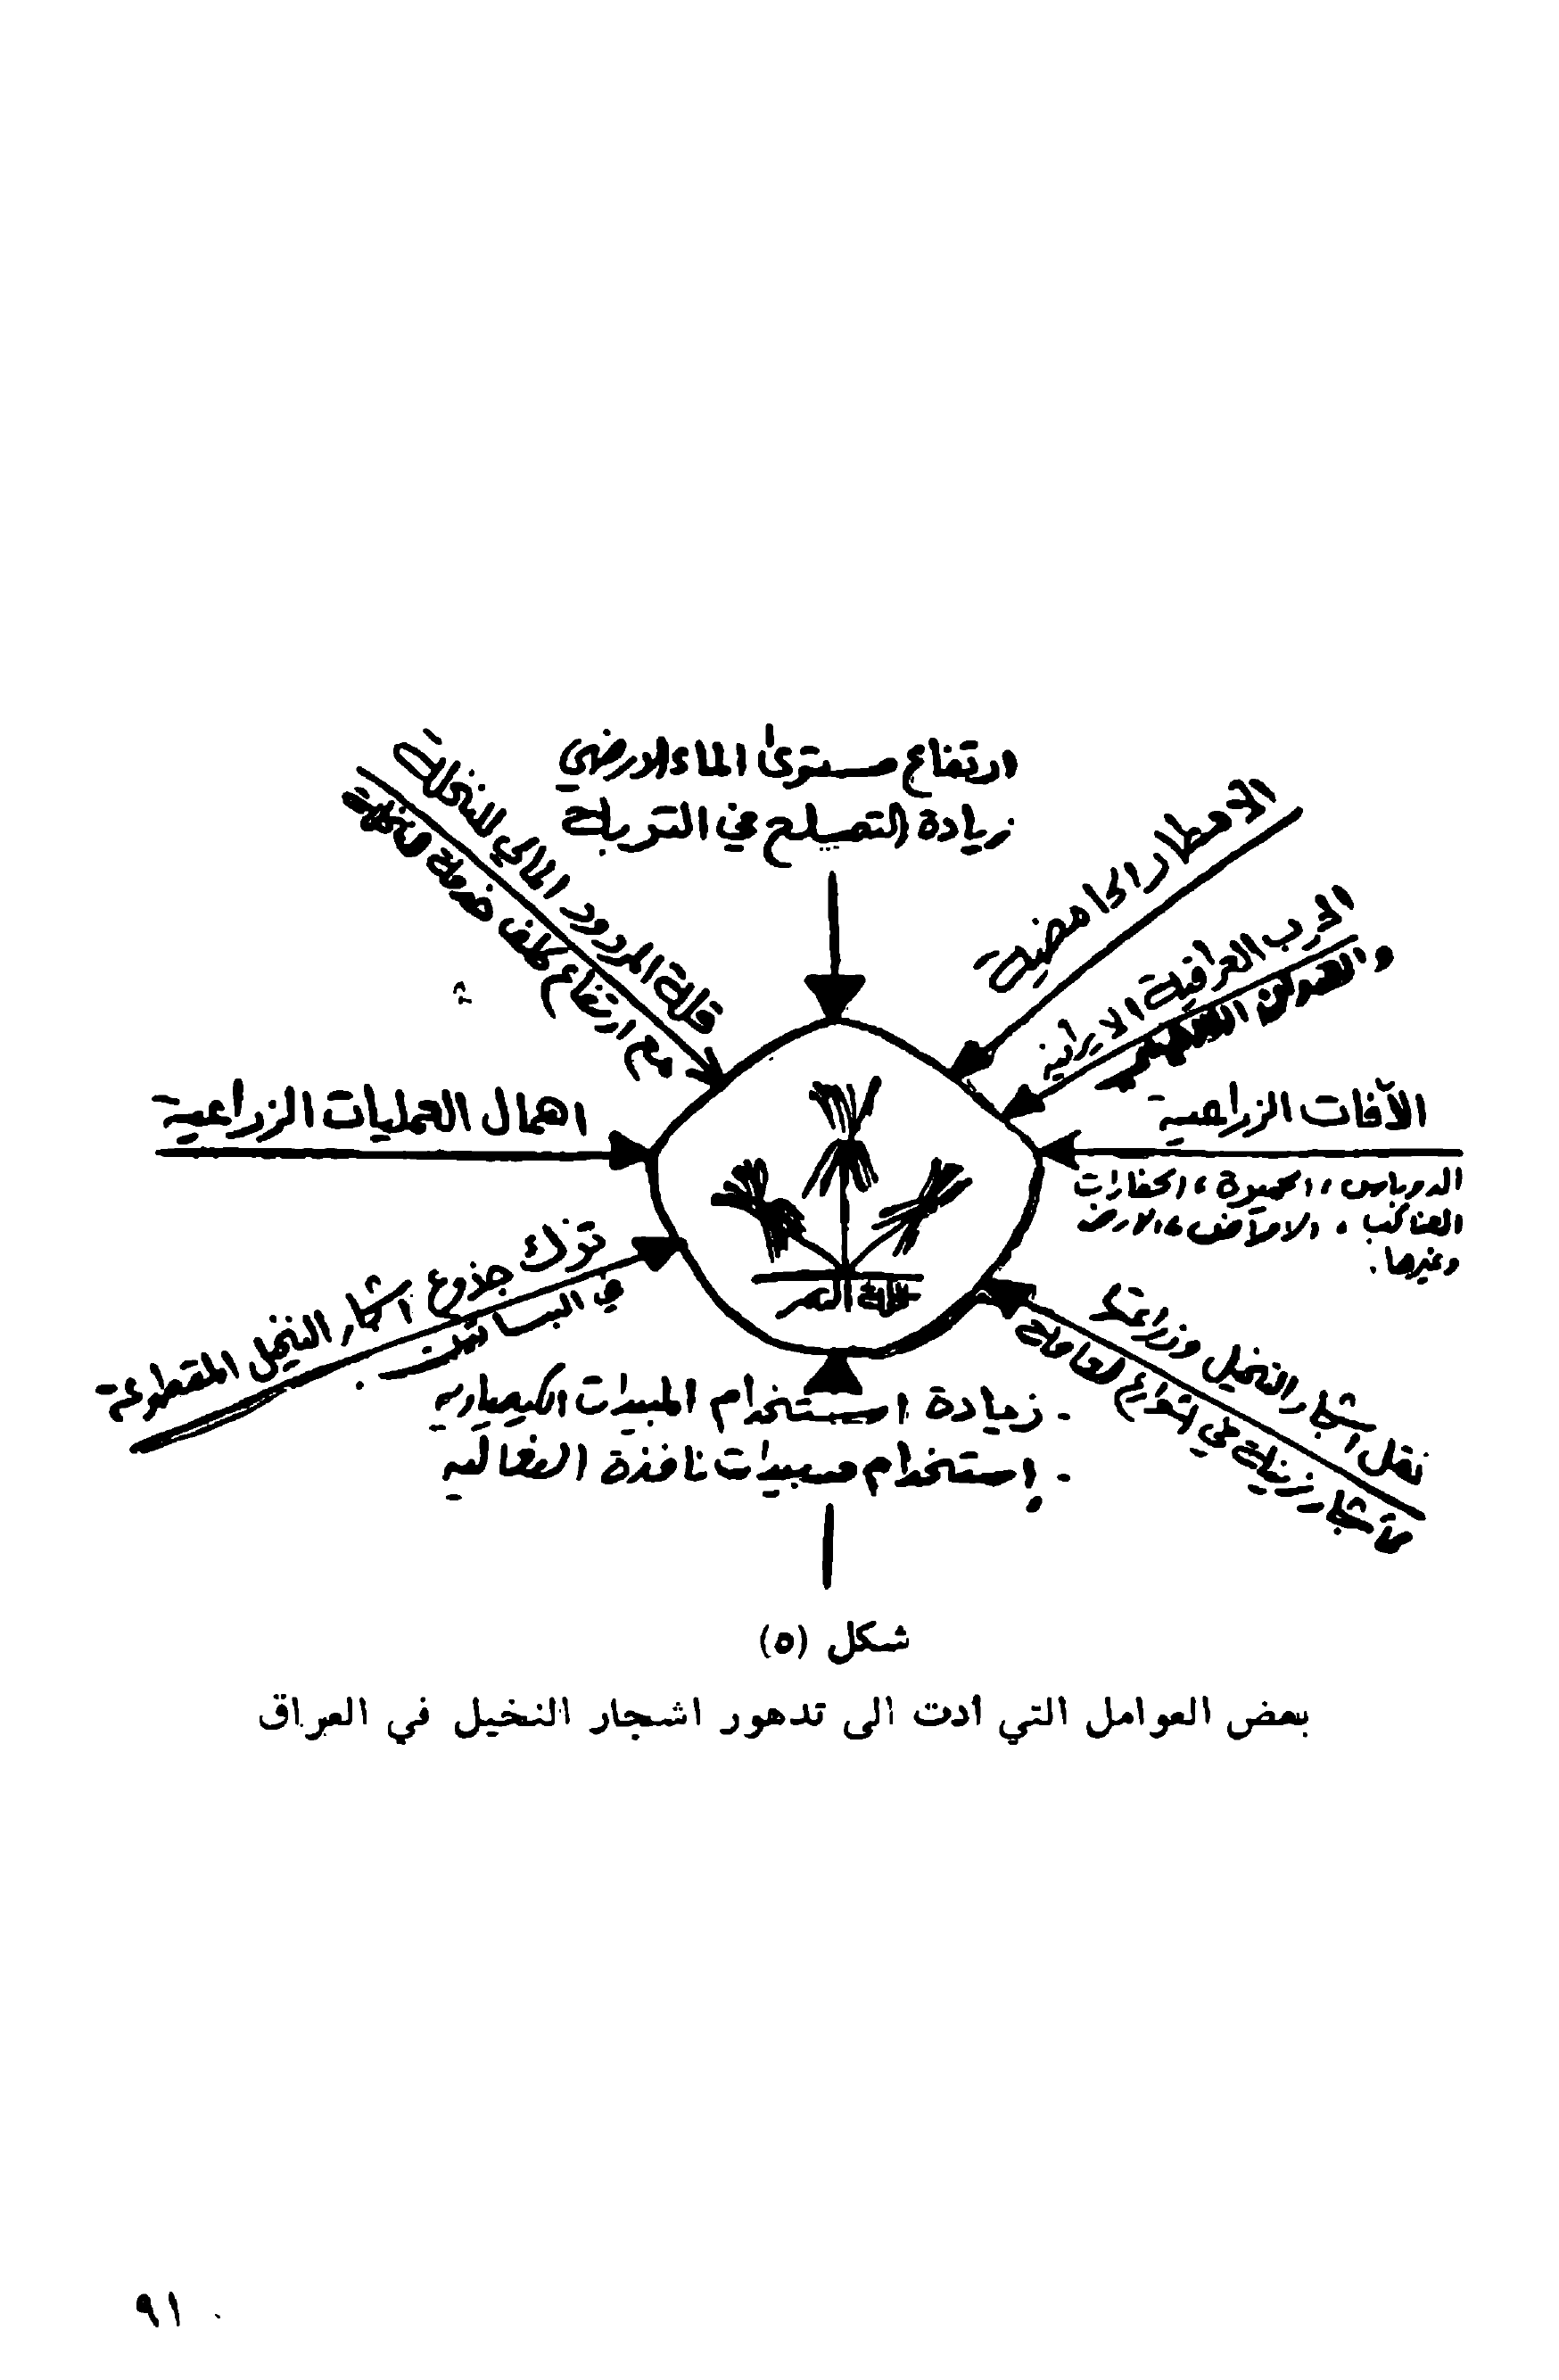 ارتفاع مستوى الماء الارضي
زيادة التمليح في التربة
الامطار الحامضية
الحرب العراقية الايرانية
والعدوان
الآفات الزراعية
الدوباس، الحميرة، الحفارات
العناكب، الامراض، الارضة
وغيرها.
نقل اشجار النخيل وزراعتها
كأشجار زينة في الشوارع العامة
- زيادة استخدام المبيدات الكيمياوية
- إستخدام مبيدات نافذة الفعالية
ترك جذوع اشجار النخيل المقطوعة
في البساتين.
اهمال العمليات الزراعية
قلة المردود المالي للنخلة
مع ارتفاع كلف خدمة النخلة
نخلة التمر
شكل (٥)
بعض العوامل التي أدت الى تدهور اشجار النخيل في العراق
٩١